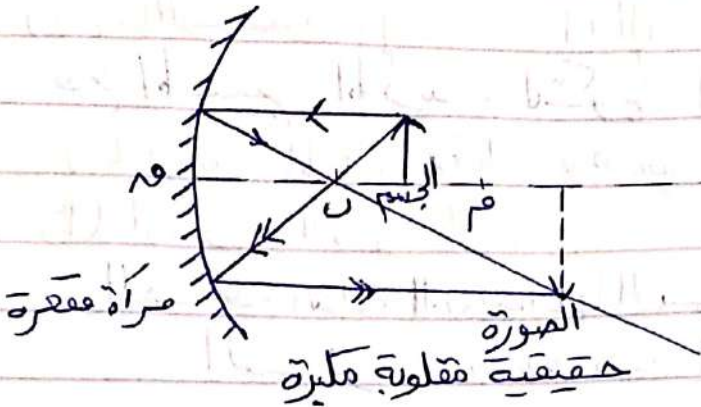 الجسم م
ن
مرآة مقعرة
الصورة
حقيقية مقلوبة مكبرة